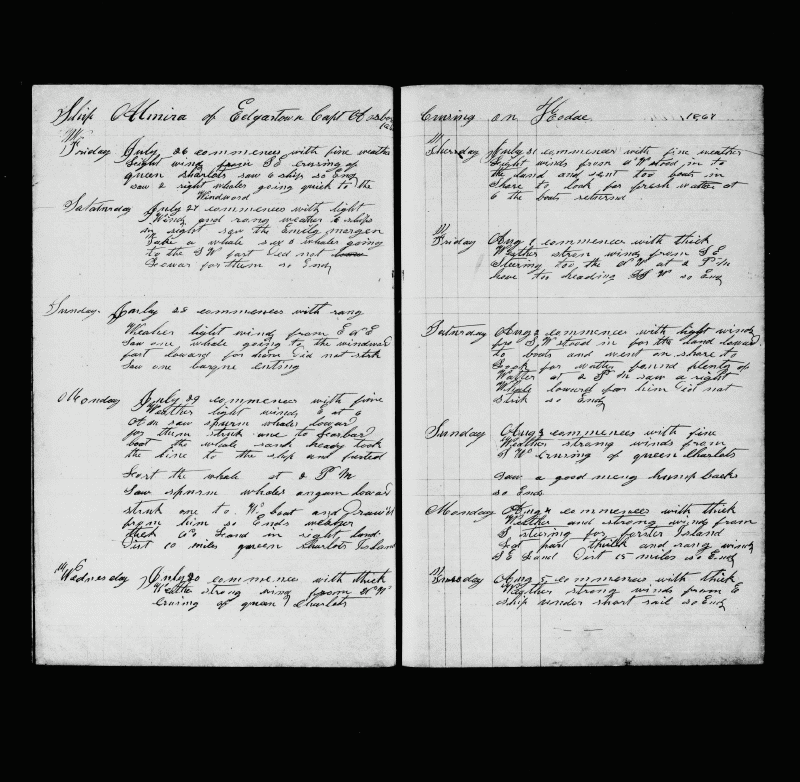 Ship Almira of Edgartown Capt Osborn
Friday July 26 commences with fine weather
Light wind from S E crusing of
queen sharlots saw 6 ship so End
saw 2 right whales going quick to the
Windward
Sataturday July 27 commences with light
Winds and rang weather 6 ships
in sight saw the Emily morgen
Take a whale saw 3 whales going
to the S W fast did not
Lowar for them so End
Sunday July 28 commences with rang
Wheather light wind from E
Saw one whale going to the windward
fast loward for him did not strik
Saw one barque cuting
Monday July 29 commences with fine
Weather light winds E at 6
A m saw spurm whales lowar
for them struk one to
boat the whale sank heady took
the line to the ship and
Lost the whale at 2 P M
Saw spurm whales angam loward
struk one to W boat and
from him so Ends weather
thick Land in right land
Dist 10 miles queen Charlots Island
Wednesday July 30 commences with thick
Weather strong wind from W
Crusing of quean Charlots
Crusing on Hodac 1867
Thursday July 31 commences with fine weather
Light winds from W stood in to
the land and sent too boats in
share to look for fresh wather at
6 the boats returnd
Friday Aug 1 commences with thick
Weather stron winds from S E
Stering too the W at 2 P M
have too heading S W so End
Saturday Aug 2 commences with light winds
fro S W stood in for the land loward
to boats and went on share to
Look for watter found plenty of
Watter at 2 P M saw a right
Whale loward for him did not
Strik so End
Sunday Aug 3 commences with fine
Weather strong winds from
S W crusing of queen Charlots
Saw a good meny hump backs
so Ends
Monday Aug 4 commences with thick
Weather and strong winds from
S stering for forster Island
Last part thick and rang winds
S E Land Dist 15 miles so End
Tuesday Aug 5 commences with thick
Weather strong winds from E
ship under short sail so End